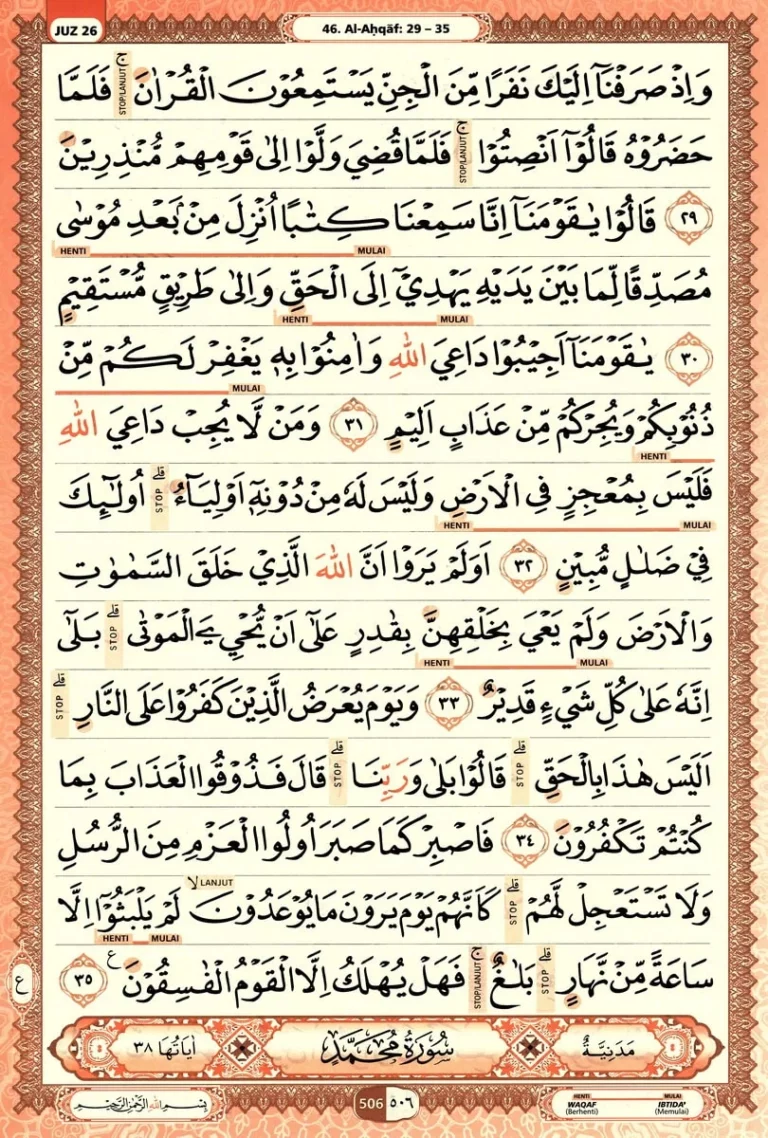 JUZ 26
46. Al-Aḥqāf: 29 – 35
وَاِذْ صَرَفْنَآ اِلَيْكَ نَفَرًا مِّنَ الْجِنِّ يَسْتَمِعُوْنَ الْقُرْاٰنَۚ STOP/LANJUT فَلَمَّا
حَضَرُوْهُ قَالُوْٓا اَنْصِتُوْاۚ STOP/LANJUT فَلَمَّا قُضِيَ وَلَّوْا اِلٰى قَوْمِهِمْ مُّنْذِرِيْنَ
٢٩ قَالُوْا يٰقَوْمَنَآ اِنَّا سَمِعْنَا كِتٰبًا اُنْزِلَ مِنْۢ بَعْدِ مُوْسٰى
HENTI MULAI
مُصَدِّقًا لِّمَا بَيْنَ يَدَيْهِ يَهْدِيْٓ اِلَى الْحَقِّ وَاِلٰى طَرِيْقٍ مُّسْتَقِيْمٍ
HENTI MULAI
٣٠ يٰقَوْمَنَآ اَجِيْبُوْا دَاعِيَ اللّٰهِ وَاٰمِنُوْا بِهٖ يَغْفِرْ لَكُمْ مِّنْ
MULAI
ذُنُوْبِكُمْ وَيُجِرْكُمْ مِّنْ عَذَابٍ اَلِيْمٍ ٣١ وَمَنْ لَّا يُجِبْ دَاعِيَ اللّٰهِ
HENTI
فَلَيْسَ بِمُعْجِزٍ فِى الْاَرْضِ وَلَيْسَ لَهٗ مِنْ دُوْنِهٖٓ اَوْلِيَاۤءُ ۗ STOP اُولٰۤىِٕكَ
HENTI MULAI
فِيْ ضَلٰلٍ مُّبِيْنٍ ٣٢ اَوَلَمْ يَرَوْا اَنَّ اللّٰهَ الَّذِيْ خَلَقَ السَّمٰوٰتِ
وَالْاَرْضَ وَلَمْ يَعْيَ بِخَلْقِهِنَّ بِقٰدِرٍ عَلٰٓى اَنْ يُّحْيِ َۧ الْمَوْتٰى ۗ STOP بَلٰٓى
HENTI MULAI
اِنَّهٗ عَلٰى كُلِّ شَيْءٍ قَدِيْرٌ ٣٣ وَيَوْمَ يُعْرَضُ الَّذِيْنَ كَفَرُوْا عَلَى النَّارِۗ STOP
اَلَيْسَ هٰذَا بِالْحَقِّ ۗ STOP قَالُوْا بَلٰى وَرَبِّنَا ۗ STOP قَالَ فَذُوْقُوا الْعَذَابَ بِمَا
كُنْتُمْ تَكْفُرُوْنَ ٣٤ فَاصْبِرْ كَمَا صَبَرَ اُولُوا الْعَزْمِ مِنَ الرُّسُلِ
وَلَا تَسْتَعْجِلْ لَّهُمْ ۗ STOP كَاَنَّهُمْ يَوْمَ يَرَوْنَ مَا يُوْعَدُوْنَۙ LANJUT لَمْ يَلْبَثُوْٓا اِلَّا
HENTI MULAI
سَاعَةً مِّنْ نَّهَارٍ ۗ STOP بَلٰغٌ ۚ STOP/LANJUT فَهَلْ يُهْلَكُ اِلَّا الْقَوْمُ الْفٰسِقُوْنَ ࣖ ٣٥
ع
مَدَنِيَّةٌ سُوْرَةُ مُحَمَّدٍ اٰيَاتُهَا ٣٨
بِسْمِ اللّٰهِ الرَّحْمٰنِ الرَّحِيْمِ
506 ٥٠٦
HENTI MULAI
WAQAF (Berhenti) IBTIDA' (Memulai)